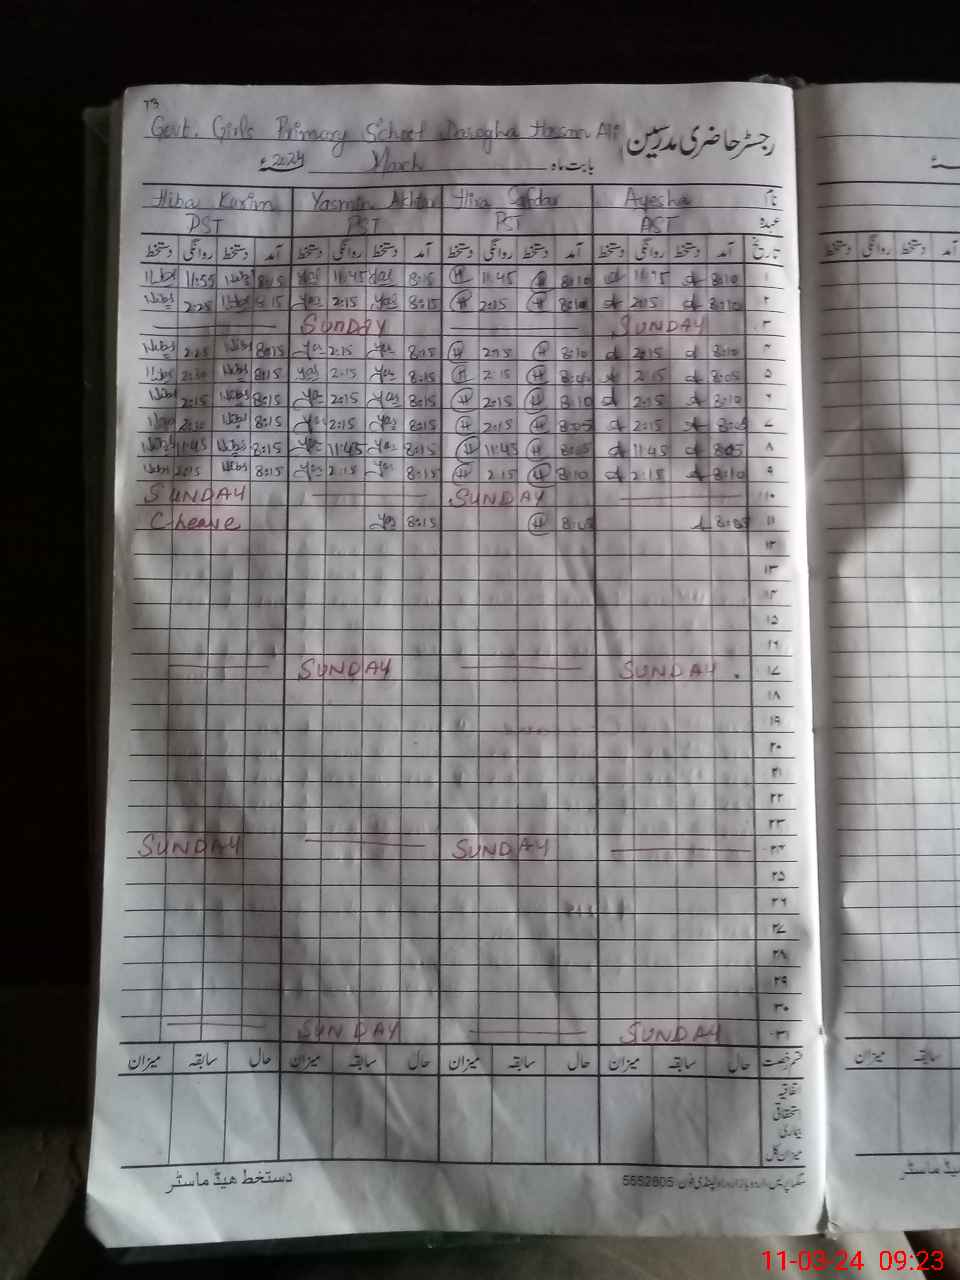 73
Govt. Girls Primary School Hasan Ali رجسٹر حاضری مدرسین
بابت ماہ March 2024ء
نام Ayesha Hira Safdar Yasmin Akhtar Hiba Karim
عہدہ AST PST PST PST
تاریخ آمد دستخط روانگی دستخط آمد دستخط روانگی دستخط آمد دستخط روانگی دستخط آمد دستخط روانگی دستخط
۱ 8:10 11:45 8:10 H 11:45 H 8:15 Yas 11:45 Yas 8:15 Hiba 11:55 Hiba
۲ 8:10 2:15 8:10 H 2:15 H 8:15 Yas 2:15 Yas 8:15 Hiba 2:25 Hiba
۳ SUNDAY SUNDAY
۴ 8:10 2:15 8:10 H 2:15 H 8:15 Yas 2:15 Yas 8:15 Hiba 2:25 Hiba
۵ 8:05 2:15 8:05 H 2:15 H 8:15 Yas 2:15 Yas 8:15 Hiba 2:20 Hiba
۶ 8:10 2:15 8:10 H 2:15 H 8:15 Yas 2:15 Yas 8:15 Hiba 2:15 Hiba
۷ 8:05 2:15 8:05 H 2:15 H 8:15 Yas 2:15 Yas 8:15 Hiba Hiba
۸ 8:05 11:45 8:05 H 11:45 H 8:15 Yas 11:45 Yas 8:15 Hiba 11:45 Hiba
۹ 8:10 2:15 8:10 H 2:15 H 8:15 Yas 2:15 Yas 8:15 Hiba 2:15 Hiba
۱۰ SUNDAY SUNDAY
۱۱ 8:05 8:05 H 8:15 Yas C leave
۱۲
۱۳
۱۴
۱۵
۱۶
۱۷ SUNDAY SUNDAY
۱۸
۱۹
۲۰
۲۱
۲۲
۲۳
۲۴ SUNDAY SUNDAY
۲۵
۲۶
۲۷
۲۸
۲۹
۳۰
۳۱ SUNDAY SUNDAY
قسم رخصت حال سابقہ میزان حال سابقہ میزان حال سابقہ میزان حال سابقہ میزان
اتفاقیہ
استحقاقی
بیماری
میزان کل
دستخط ھیڈ ماسٹر
اردو بازار راولپنڈی فون: 5552805
دستخط روانگی دستخط آمد
میزان سابقہ
ماسٹر
11-03-24 09:23